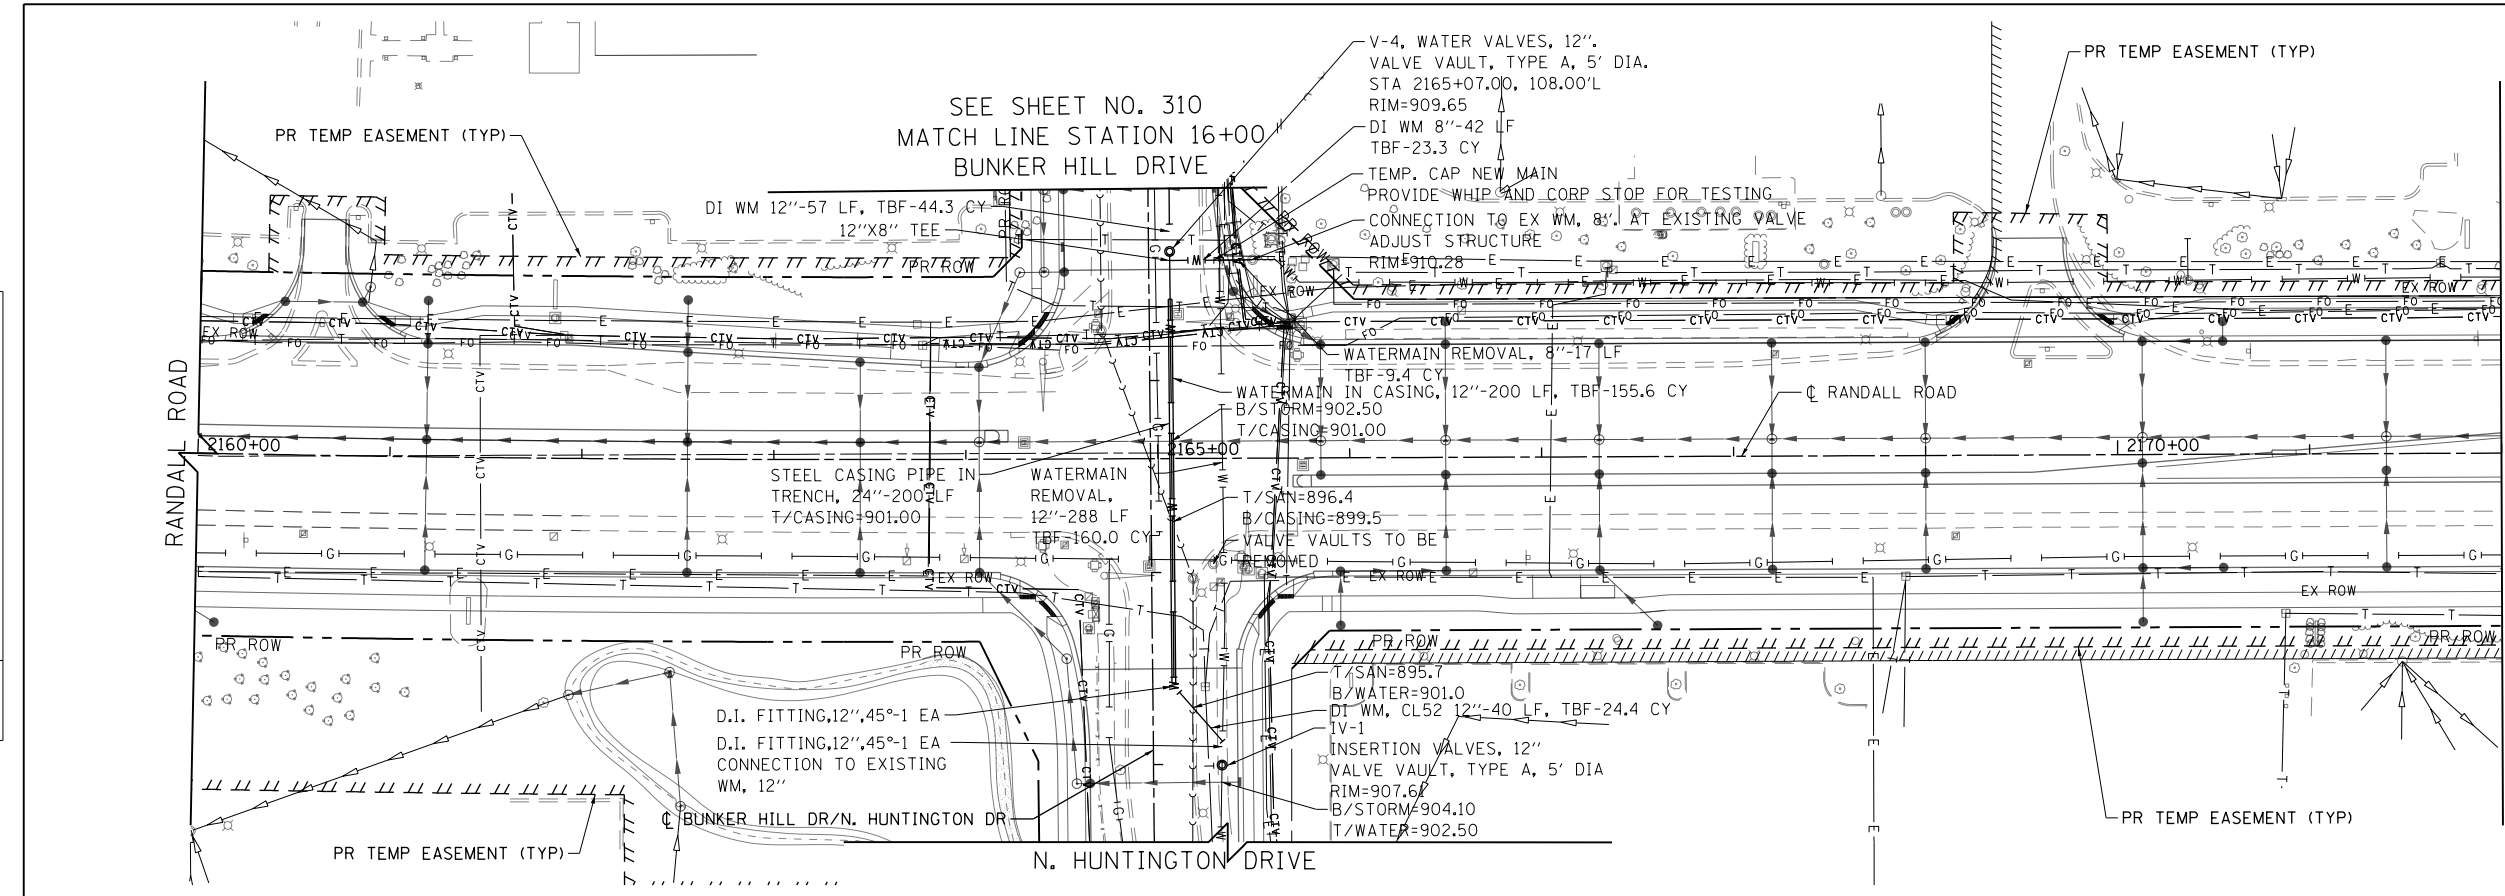 SEE SHEET NO. 310
MATCH LINE STATION 16+00
BUNKER HILL DRIVE
V-4, WATER VALVES, 12".
VALVE VAULT, TYPE A, 5' DIA.
STA 2165+07.00, 108.00'L
RIM=909.65
DI WM 8"-42 LF
TBF-23.3 CY
TEMP. CAP NEW MAIN
PROVIDE WHIP AND CORP STOP FOR TESTING
CONNECTION TO EX WM, 8". AT EXISTING VALVE
ADJUST STRUCTURE
RIM=910.28
PR TEMP EASEMENT (TYP)
PR TEMP EASEMENT (TYP)
DI WM 12"-57 LF, TBF-44.3 CY
12"X8" TEE
PR ROW
PR ROW
PR ROW
EX ROW
EX ROW
EX ROW
WATERMAIN REMOVAL, 8"-17 LF
TBF-9.4 CY
WATERMAIN IN CASING, 12"-200 LF, TBF-155.6 CY
B/STORM=902.50
T/CASING=901.00
℄ RANDALL ROAD
RANDALL ROAD
2160+00
2165+00
2170+00
STEEL CASING PIPE IN
TRENCH, 24"-200 LF
T/CASING=901.00
WATERMAIN
REMOVAL,
12"-288 LF
TBF-160.0 CY
T/SAN=896.4
B/CASING=899.5
VALVE VAULTS TO BE
REMOVED
EX ROW
EX ROW
EX ROW
PR ROW
PR ROW
PR ROW
PR ROW
T/SAN=895.7
B/WATER=901.0
DI WM, CL52 12"-40 LF, TBF-24.4 CY
IV-1
INSERTION VALVES, 12"
VALVE VAULT, TYPE A, 5' DIA
RIM=907.61
B/STORM=904.10
T/WATER=902.50
D.I. FITTING,12",45°-1 EA
D.I. FITTING,12",45°-1 EA
CONNECTION TO EXISTING
WM, 12"
℄ BUNKER HILL DR/N. HUNTINGTON DR
PR TEMP EASEMENT (TYP)
PR TEMP EASEMENT (TYP)
N. HUNTINGTON DRIVE